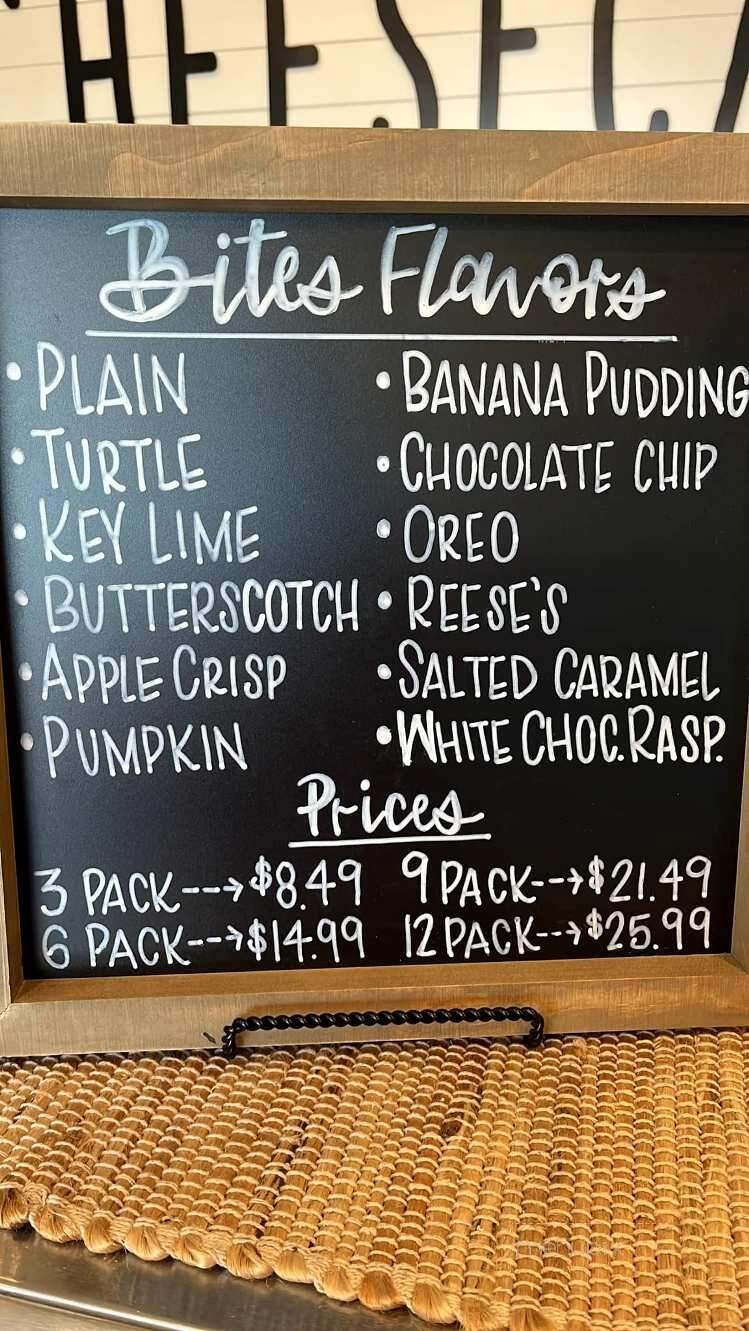 HEESECA
Bites Flavors
• PLAIN
• TURTLE
• KEY LIME
• BUTTERSCOTCH
• APPLE CRISP
• PUMPKIN
• BANANA PUDDING
• CHOCOLATE CHIP
• OREO
• REESE'S
• SALTED CARAMEL
• WHITE CHOC. RASP.
Prices
3 PACK--->$8.49
6 PACK--->$14.99
9 PACK--->$21.49
12 PACK--->$25.99